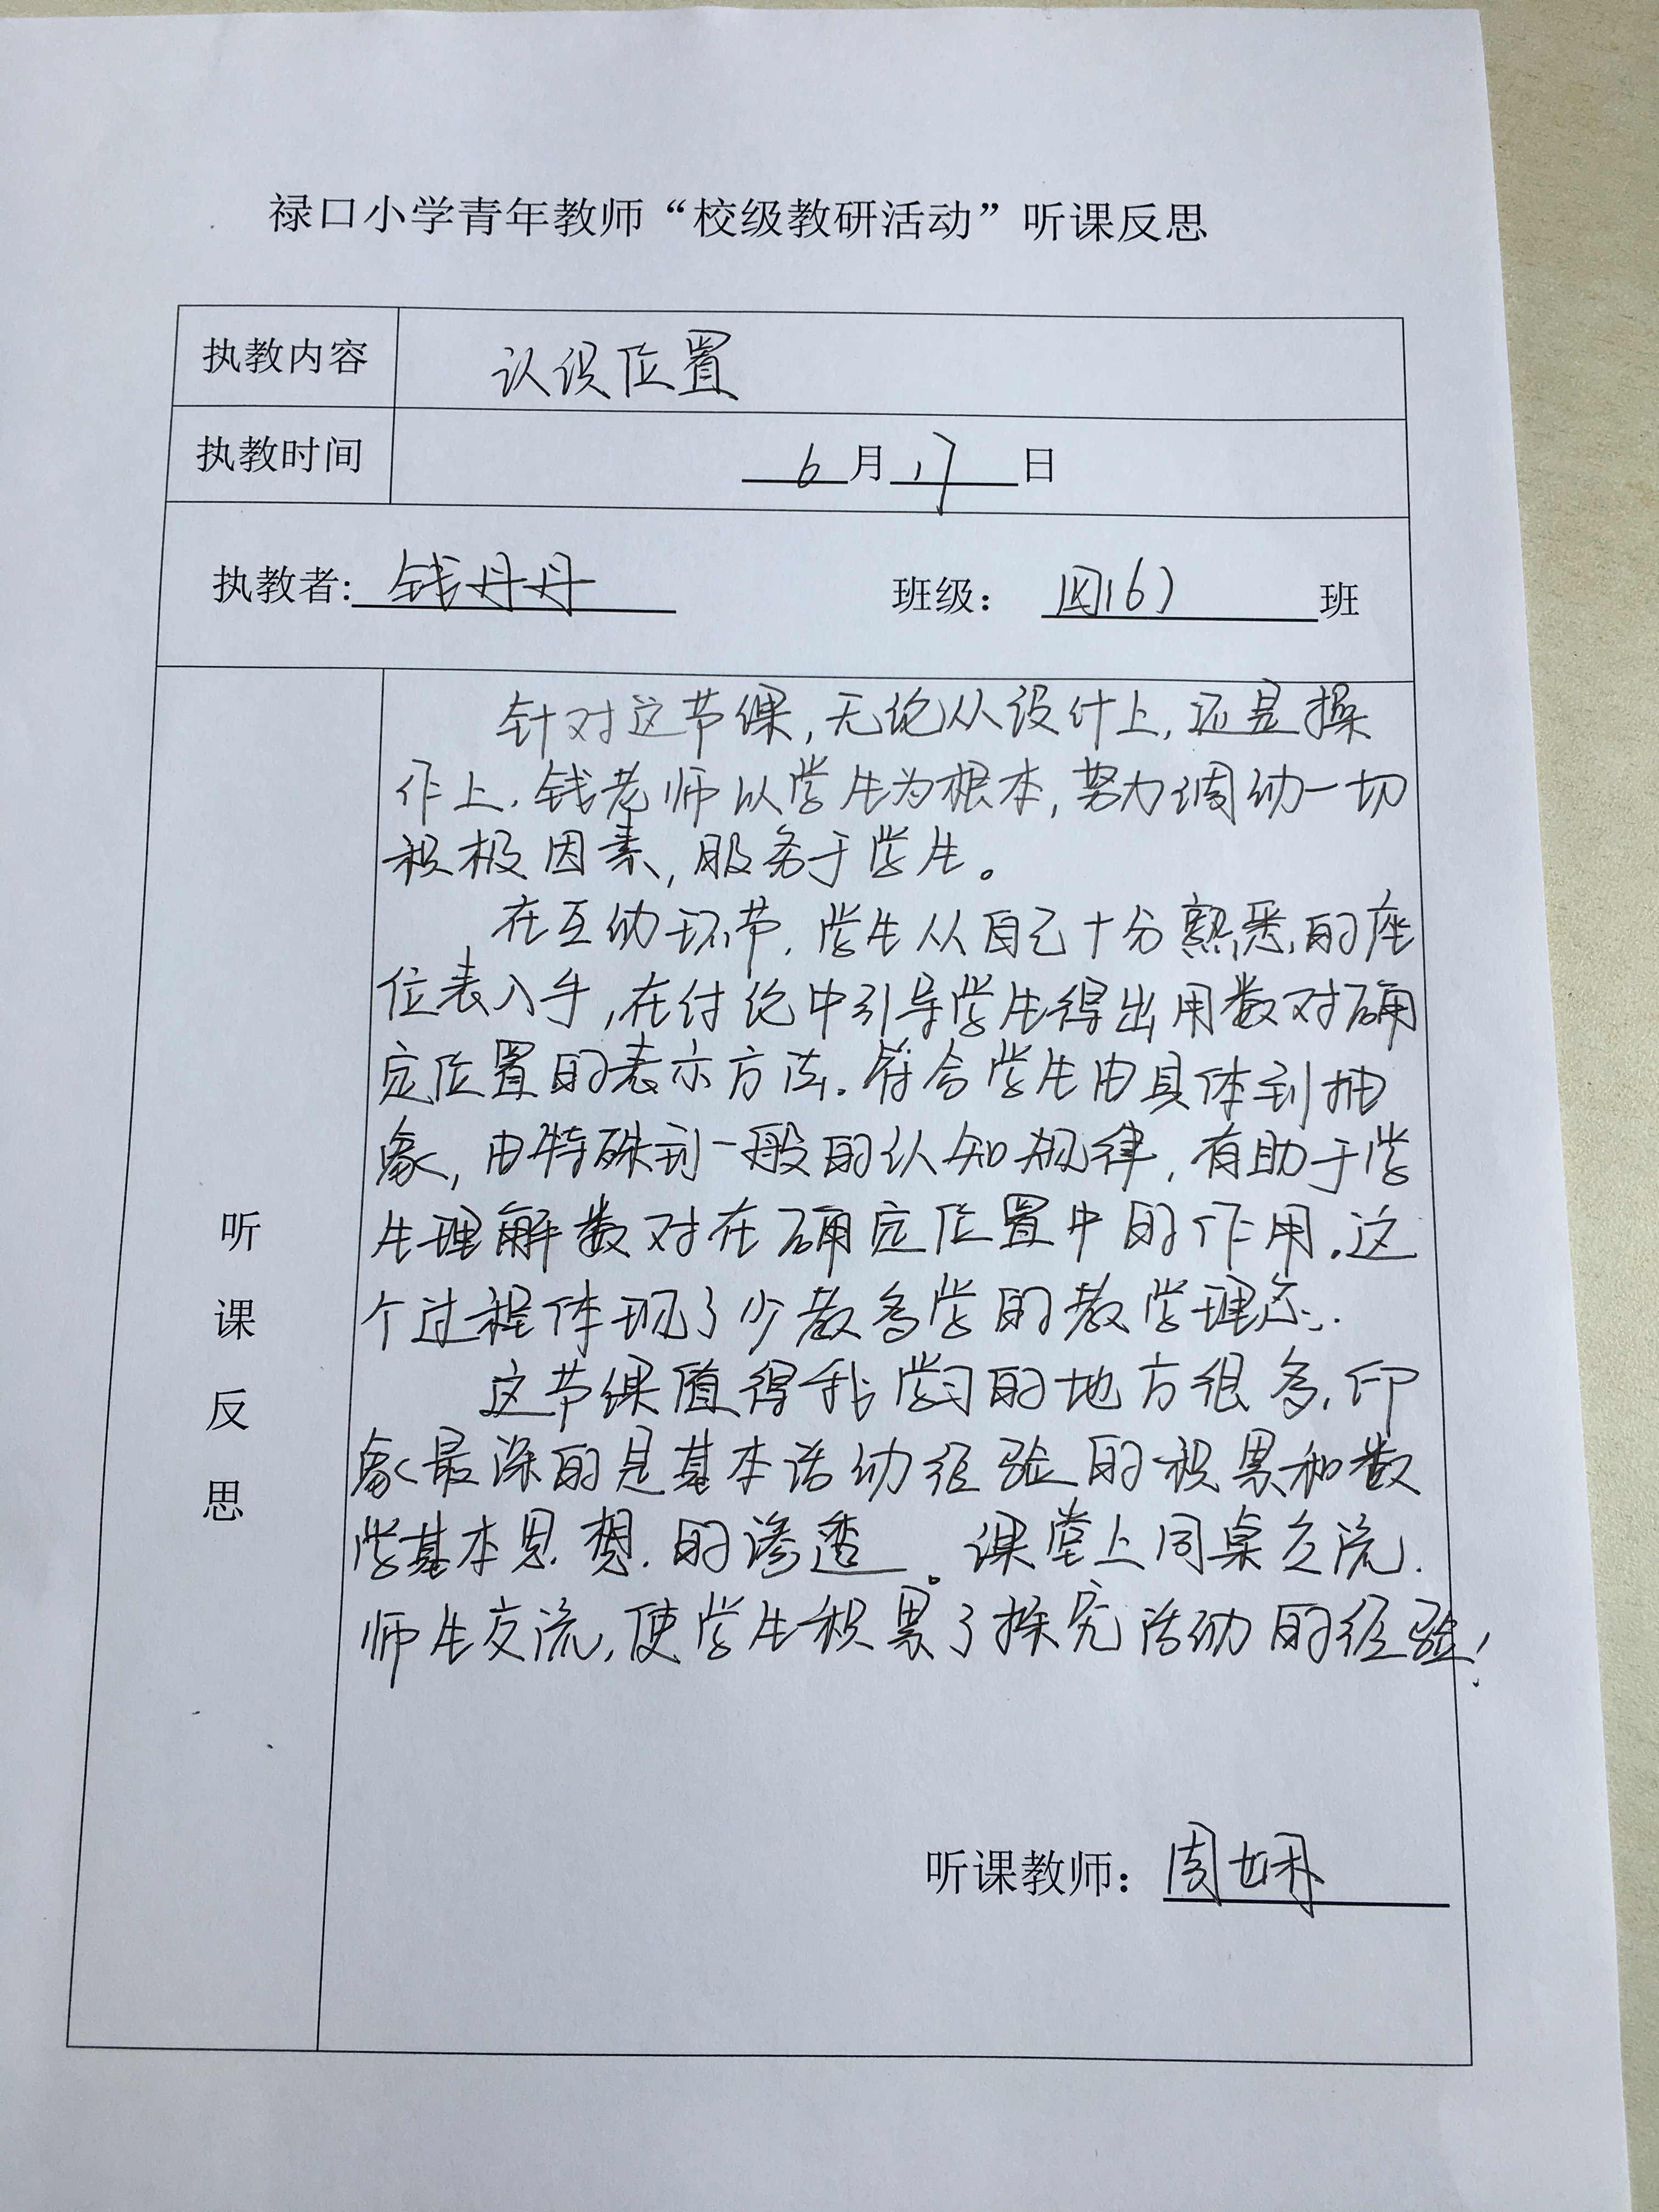 禄口小学青年教师“校级教研活动”听课反思
执教内容 认识位置
执教时间 6月17日
执教者: 钱丹丹 班级： 四(6) 班
听课反思
针对这节课,无论从设计上,还是操
作上.钱老师以学生为根本,努力调动一切
积极因素,服务于学生。
在互动环节,学生从自己十分熟悉的座
位表入手,在讨论中引导学生得出用数对确
定位置的表示方法.符合学生由具体到抽
象,由特殊到一般的认知规律,有助于学
生理解数对在确定位置中的作用.这
个过程体现了少教多学的教学理念.
这节课值得我学习的地方很多,印
象最深的是基本活动经验的积累和数
学基本思想的渗透。课堂上同桌交流.
师生交流,使学生积累了探究活动的经验!
听课教师： 周